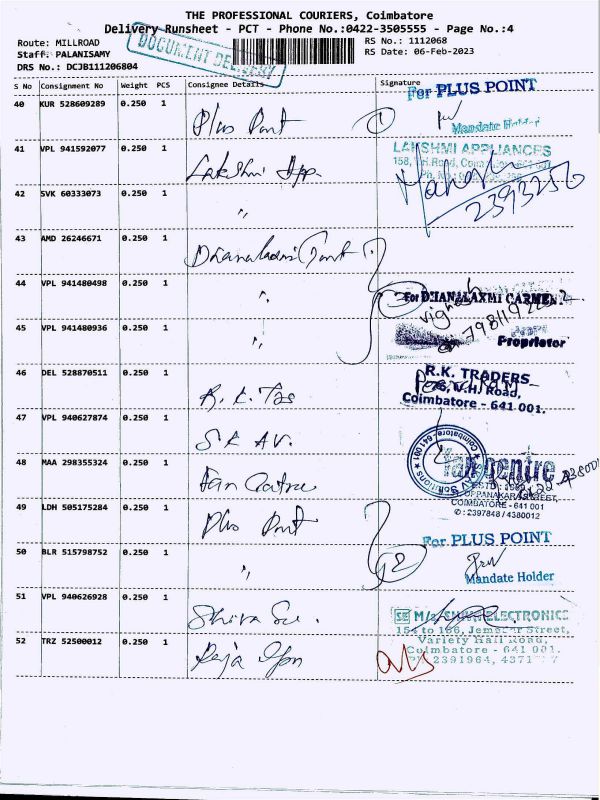 THE PROFESSIONAL COURIERS, Coimbatore
Delivery Runsheet - PCT - Phone No.:0422-3505555 - Page No.:4
DOCUMENT DELIVERY
Route: MILLROAD
RS No.: 1112068
Staff: PALANISAMY
RS Date: 06-Feb-2023
DRS No.: DCJB111206804
S No Consignment No Weight PCS Consignee Details Signature
40 KUR 528609289 0.250 1 Plus Point 1 For PLUS POINT
Mandate Holder
41 VPL 941592077 0.250 1 Lakshmi App. LAKSHMI APPLIANCES
42 SVK 60333073 0.250 1 " 2393256
43 AMD 26246671 0.250 1
44 VPL 941480498 0.250 1 " For DHANALAXMI GARMEN
vignesh
45 VPL 941480936 0.250 1 " Proprietor
46 DEL 528870511 0.250 1 R.K. R.K. TRADERS
V.H. Road,
Coimbatore - 641 001.
47 VPL 940627874 0.250 1 SK AV. Coimbatore 641 001
48 MAA 298355324 0.250 1 Fan Centre Fan centre
OPPANAKARA STREET,
COIMBATORE - 641 001
: 2397848 / 4380012
49 LDH 505175284 0.250 1 Plus Point
For PLUS POINT
50 BLR 515798752 0.250 1 " 2
Mandate Holder
51 VPL 940626928 0.250 1 Shiva M/s. ELECTRONICS
154 to 166, Street,
Variety Hall Road,
52 TRZ 52500012 0.250 1 Raja Coimbatore - 641 001.
2391964, 4371